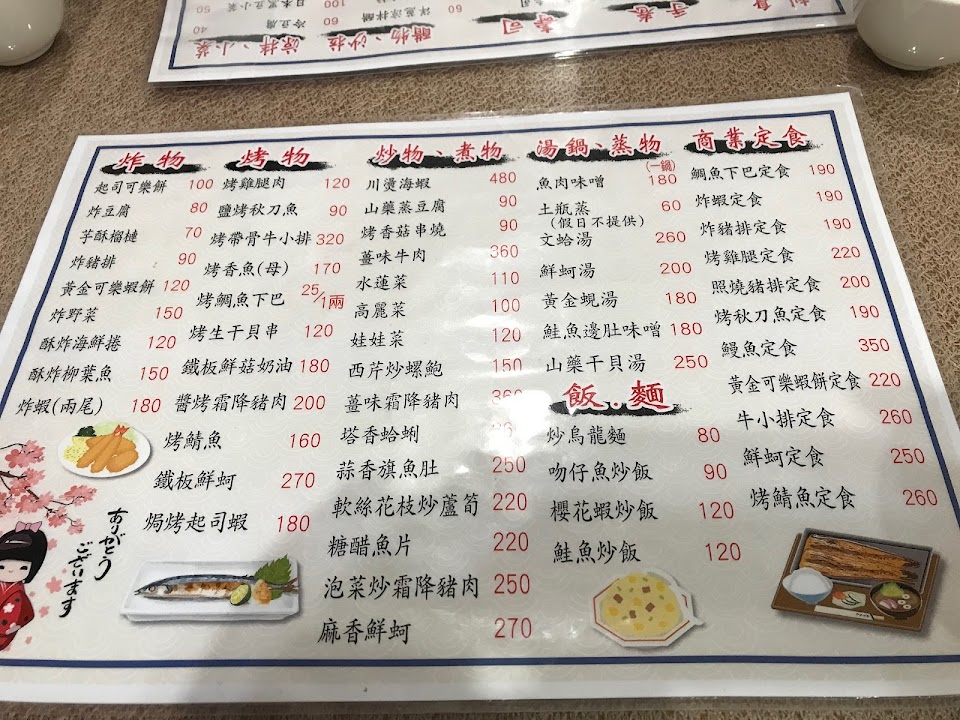 炸物
起司可樂餅 100
炸豆腐 80
芋酥榴槤 70
炸豬排 90
黃金可樂蝦餅 120
炸野菜 150
酥炸海鮮捲 120
酥炸柳葉魚 150
炸蝦(兩尾) 180
烤物
烤雞腿肉 120
鹽烤秋刀魚 90
烤帶骨牛小排 320
烤香魚(母) 170
烤鯛魚下巴 25/1兩
烤生干貝串 120
鐵板鮮菇奶油 180
醬烤霜降豬肉 200
烤鯖魚 160
鐵板鮮蚵 270
焗烤起司蝦 180
炒物、煮物
川燙海蝦 480
山藥蒸豆腐 90
烤香菇串燒 90
薑味牛肉 360
水蓮菜 110
高麗菜 100
娃娃菜 120
西芹炒螺鮑 150
薑味霜降豬肉
塔香蛤蜊
蒜香旗魚肚 250
軟絲花枝炒蘆筍 220
糖醋魚片 220
泡菜炒霜降豬肉 250
麻香鮮蚵 270
湯鍋、蒸物
魚肉味噌 (一鍋) 180
土瓶蒸 60
(假日不提供)
文蛤湯 260
鮮蚵湯 200
黃金蜆湯 180
鮭魚邊肚味噌 180
山藥干貝湯 250
飯.麵
炒烏龍麵 80
吻仔魚炒飯 90
櫻花蝦炒飯 120
鮭魚炒飯 120
商業定食
鯛魚下巴定食 190
炸蝦定食 190
炸豬排定食 190
烤雞腿定食 220
照燒豬排定食 200
烤秋刀魚定食 190
鰻魚定食 350
黃金可樂蝦餅定食 220
牛小排定食 260
鮮蚵定食 250
烤鯖魚定食 260
ありがとう
ございます
涼拌、小菜
冷豆腐 40
日本黑豆小菜 50
醋物、沙拉
60
100
壽司
60
手卷
刺身